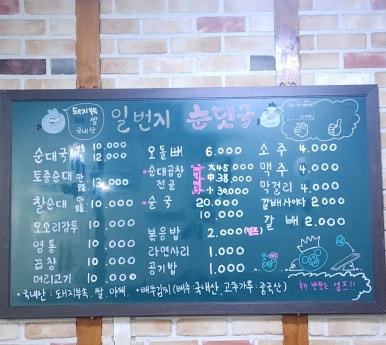 돼지부속
쌀
국내산
일번지 순댓국
순대국 10,000
12,000
토종순대 13,000
찰순대 10,000
오소리감투 10,000
염통 10,000
곱창 10,000
머리고기 10,000
오돌뼈 6,000
순대곱창
전골
대 45,000
중 38,000
소 34,000
술국 20,000
10,000
볶음밥 2,000
라면사리 1,000
공기밥 1,000
소주 4,000
맥주 4,000
막걸리 4,000
사이다 2,000
갈배 2,000
*국내산 : 돼지부속, 쌀, 야채 *배추김치(배추:국내산, 고추가루:중국산)
추가 반찬은 셀프!!